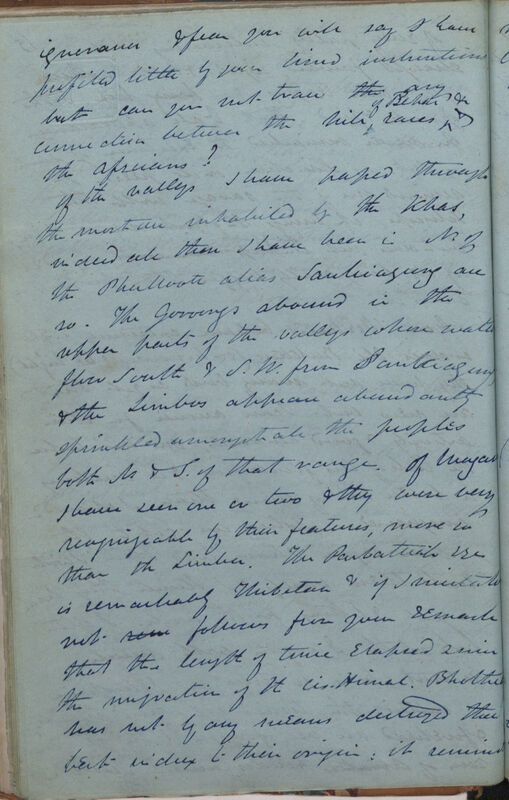 ignorance & fear you will say I have
profited little by your kind instructions
but can you not trace any
connection between the hill races of Behar &
the Africans?
Of the valleys I have passed through
the most are inhabited by the Khas,
indeed all those I have been in N. of
the Phulloote alias Sankiagung are
so. The Goorungs abound in the
upper parts of the valleys whose waters
flow South & S.W. from Sankiagung
& the Limbos appear abundantly
sprinkled amongst all the peoples
both N & S. of that range. Of Magars
I have seen one or two & they were very
recognizable by their features, more so
than the Limbos. The Parbattiah eye
is remarkably Thibetan & if I mistake
not follows from your remark
that the length of time elapsed since
the migration of the cis-Himal. Bhotias
has not by any means destroyed the
best index to their origin: it remind